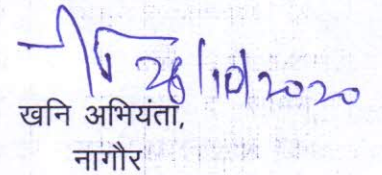 28/10/2020
खनि अभियंता,
नागौर